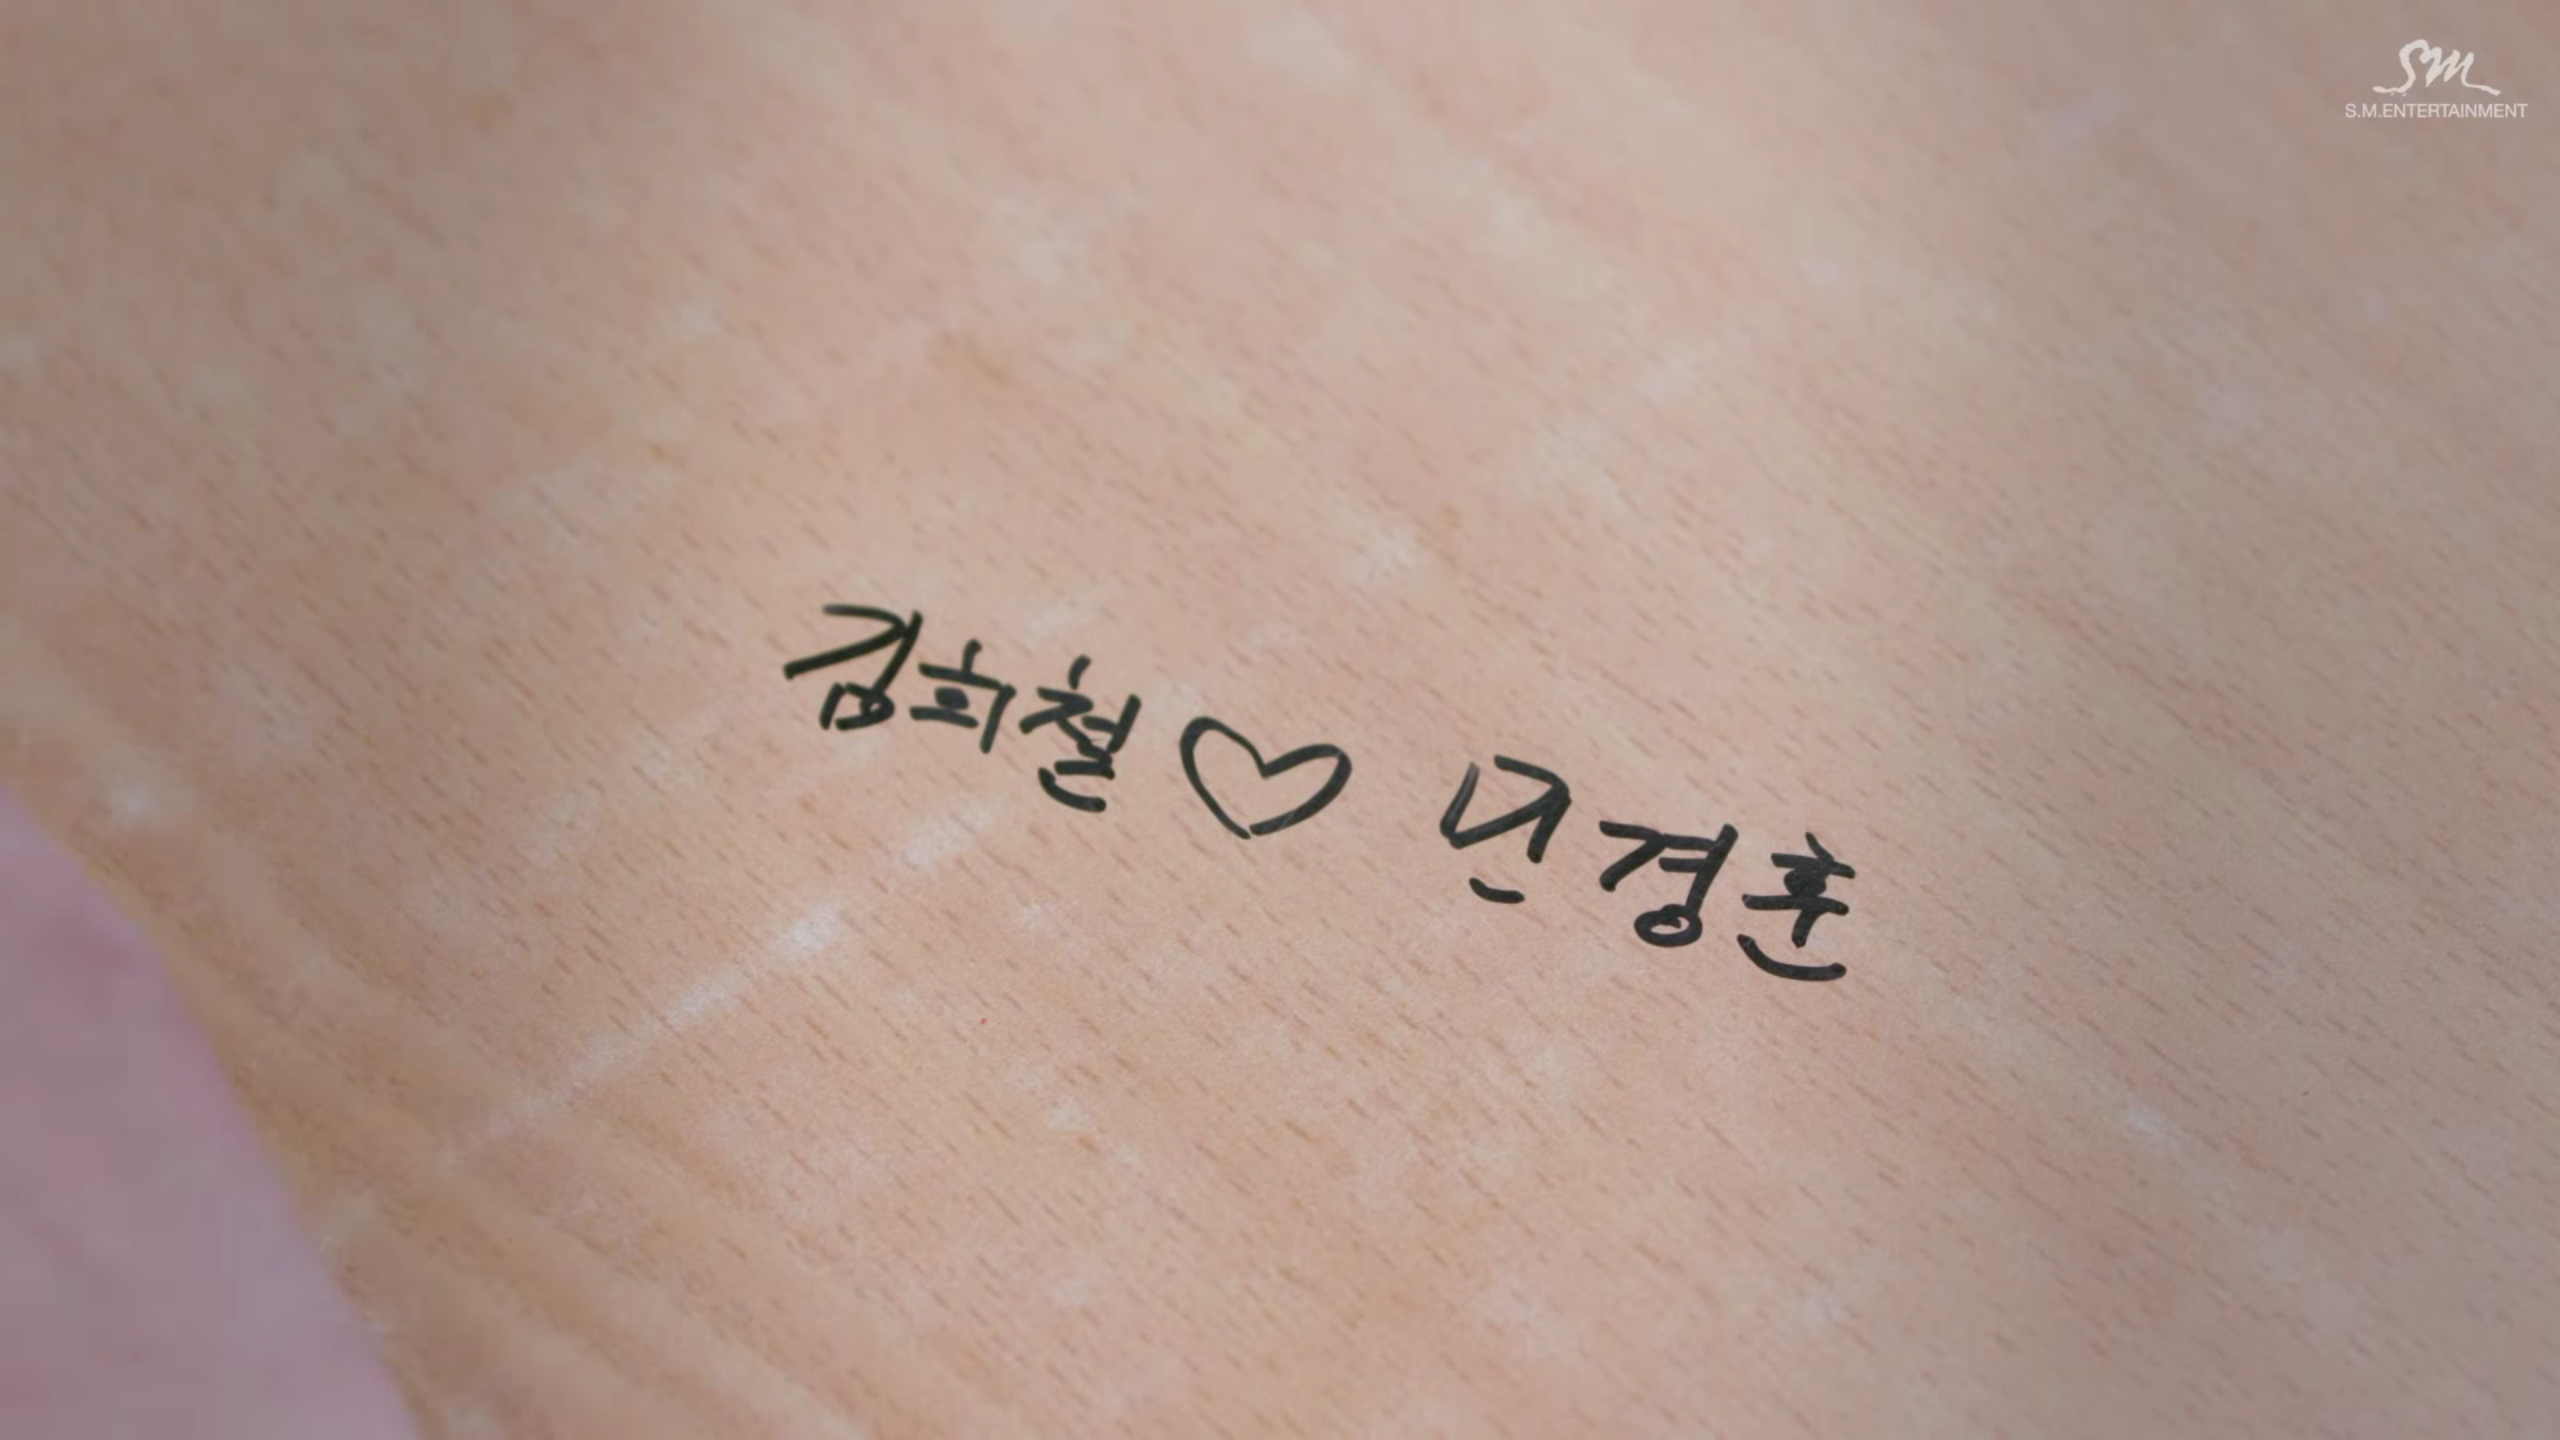 SM
S.M.ENTERTAINMENT
김희철♡ 민경훈